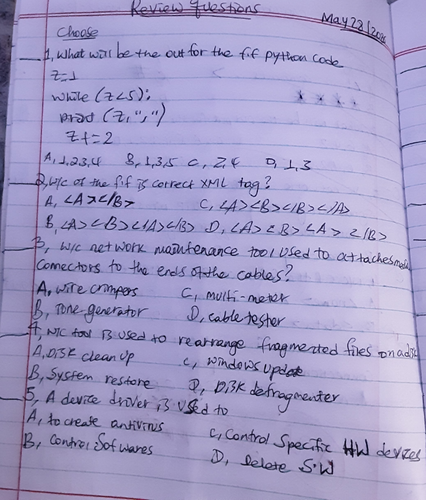 Review Questions
May 22/20
Choose
1, What will be the out for the f.f python code
Z=1
while (Z<5):
print (Z, ",")
Z+=2
A, 1,2,3,4 B, 1,3,5 C, 2,4 D, 1,3
2, w/c of the f.f is correct XML tag?
A, <A></B> C, <A><B></B></A>
B, <A><B></A></B> D, <A><B><A></B>
3, w/c network maintenance tool used to attaches
connectors to the ends of the cables?
A, wire crimpers C, multi-meter
B, Tone generator D, cable tester
4, w/c tool is used to rearrange fragmented files on a disc
A, Disk clean up C, windows update
B, System restore D, Disk defragmenter
5, A device driver is used to
A, to create antivirus C, Control Specific HW devices
B, Control Softwares D, Delete S.W